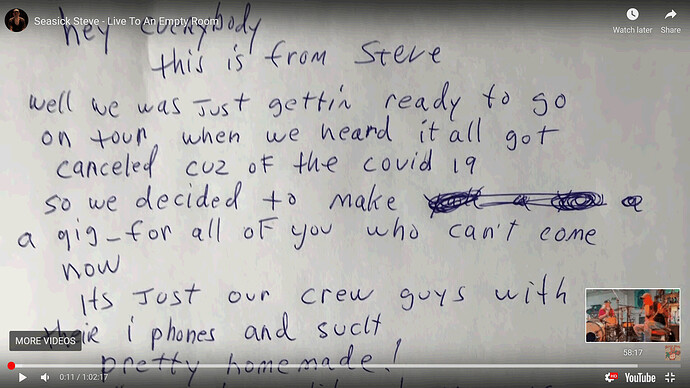 Seasick Steve - Live To An Empty Room
Watch later
Share
hey everybody
this is from Steve
well we was Just gettin ready to go
on tour when we heard it all got
canceled cuz of the covid 19
so we decided to make
a gig_for all of you who can't come
now
Its Just our crew guys with
their i phones and sucH
pretty homemade!
MORE VIDEOS
58:17
0:11 / 1:02:17
HD
YouTube